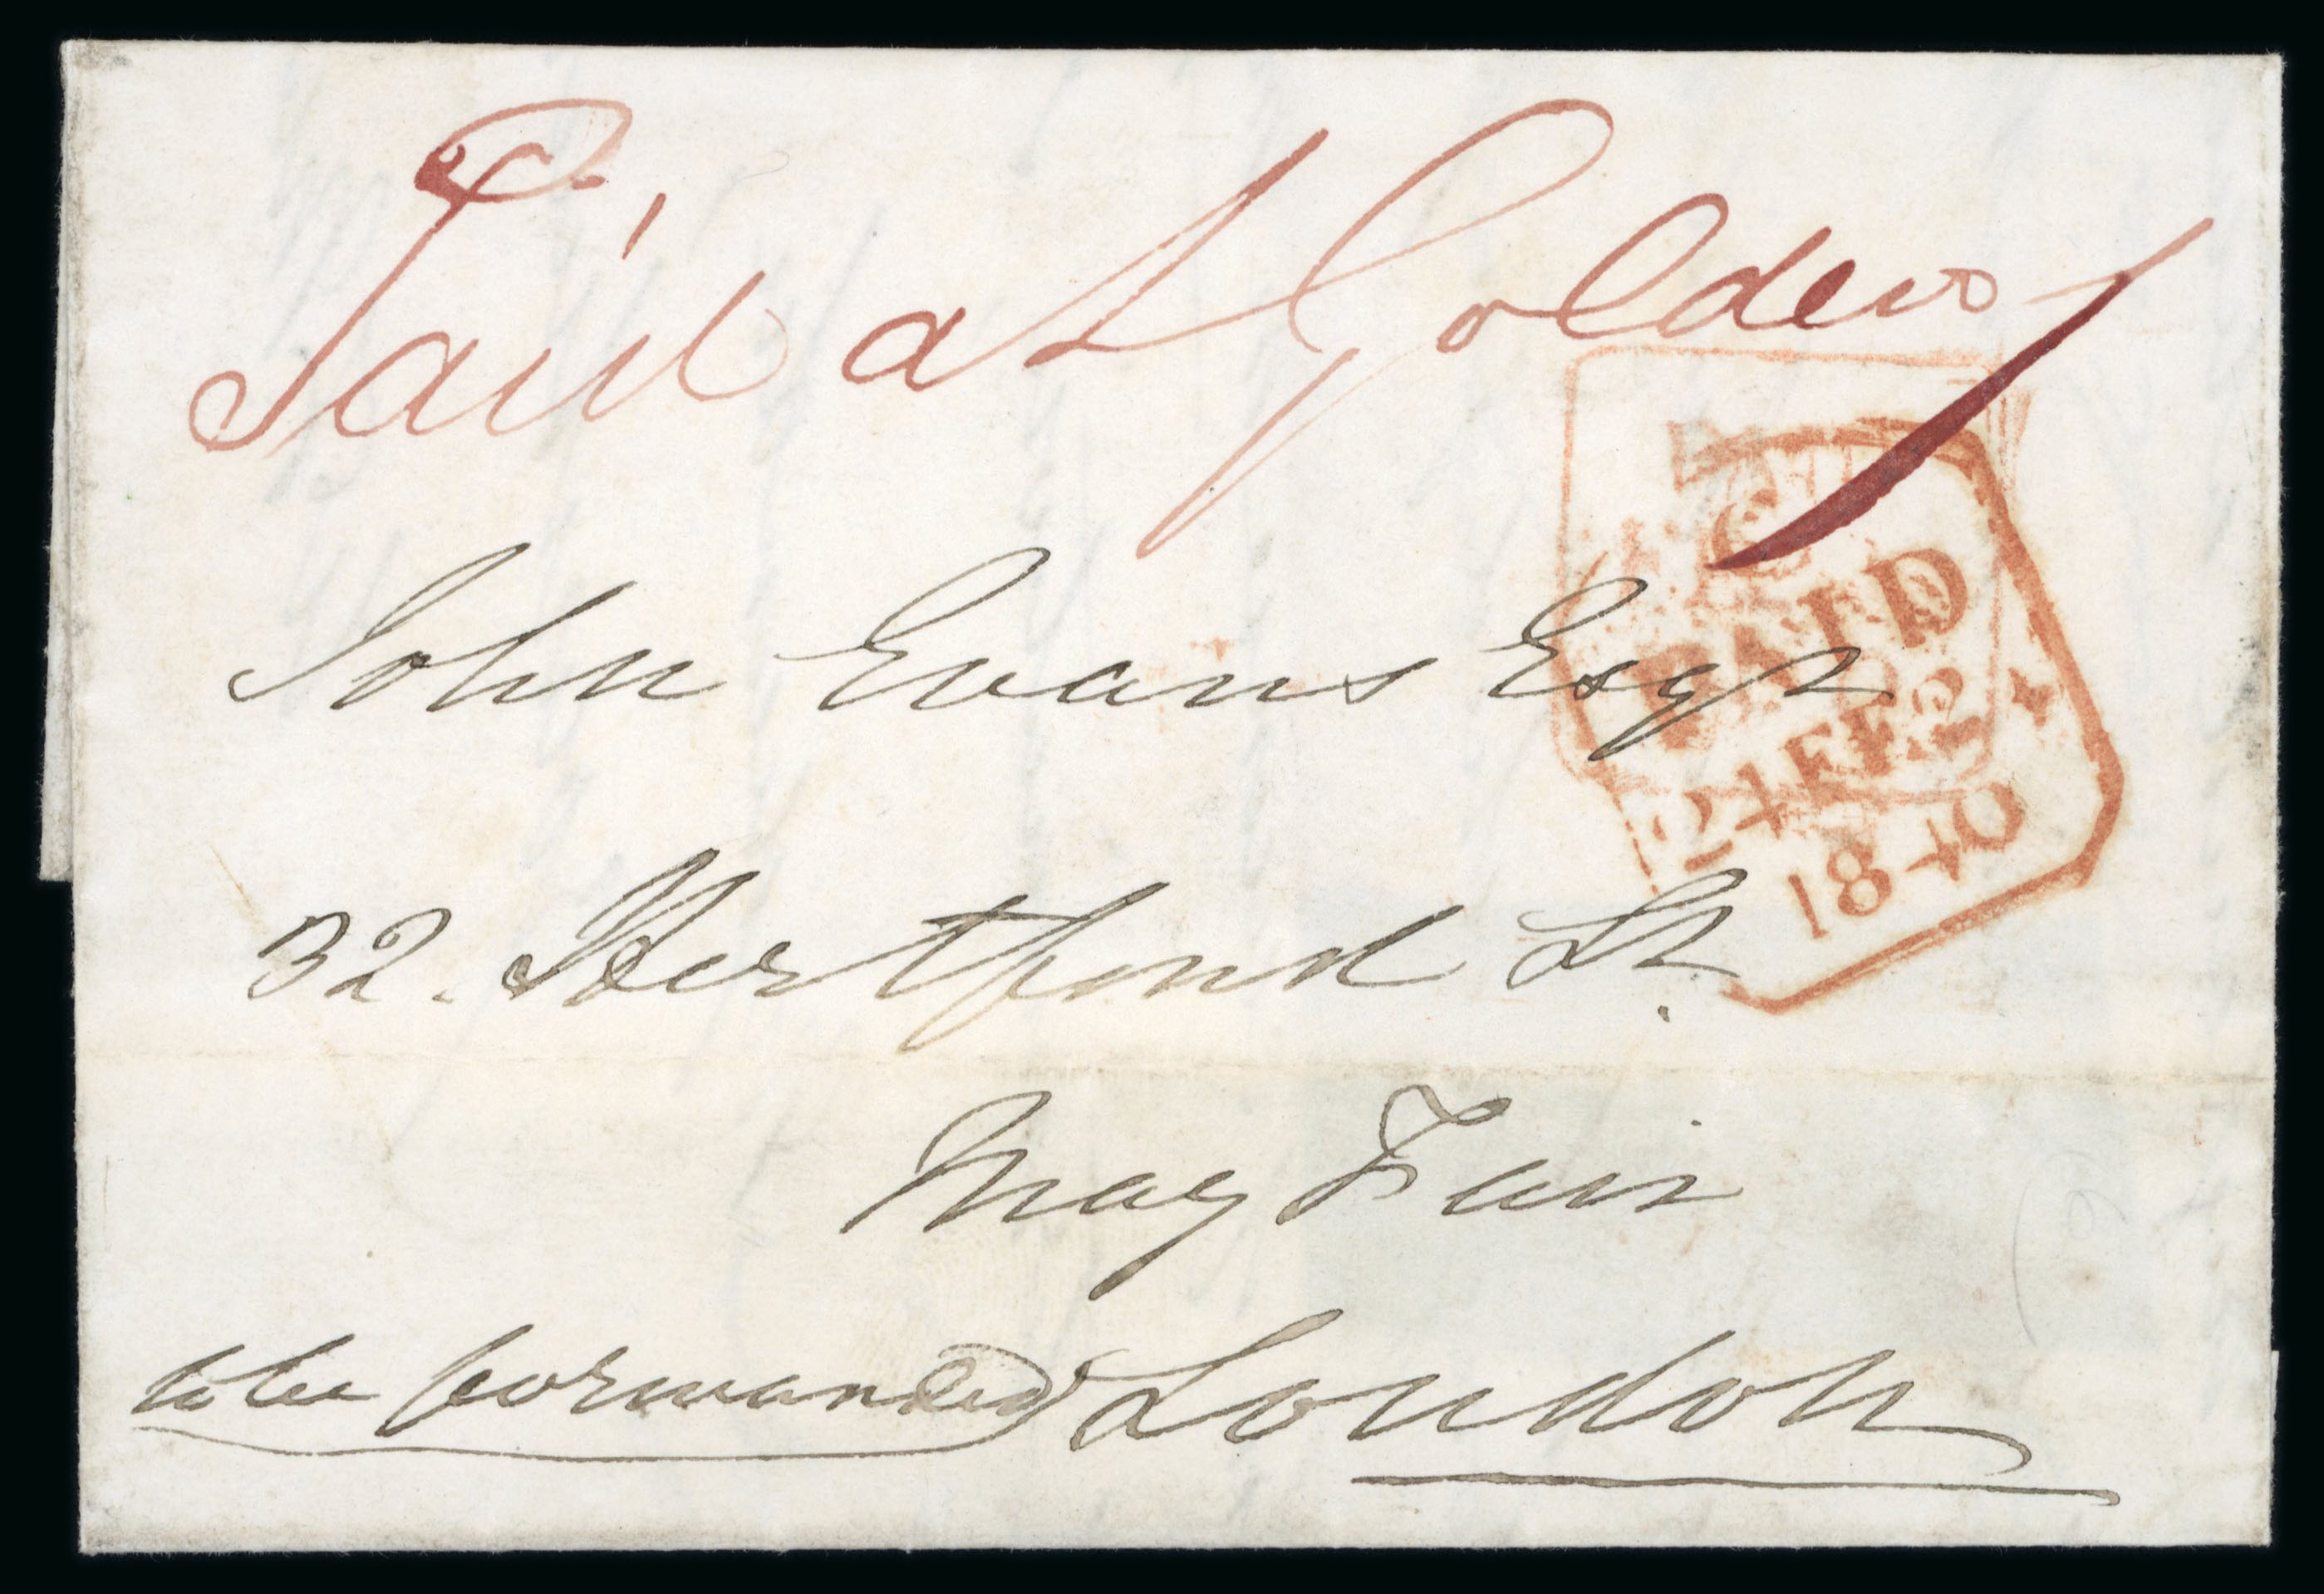 Paid at Golden 1
John Evans Esqr
32. Hertford St.
May Fair
to be forwarded London
PAID
24 FE
1840